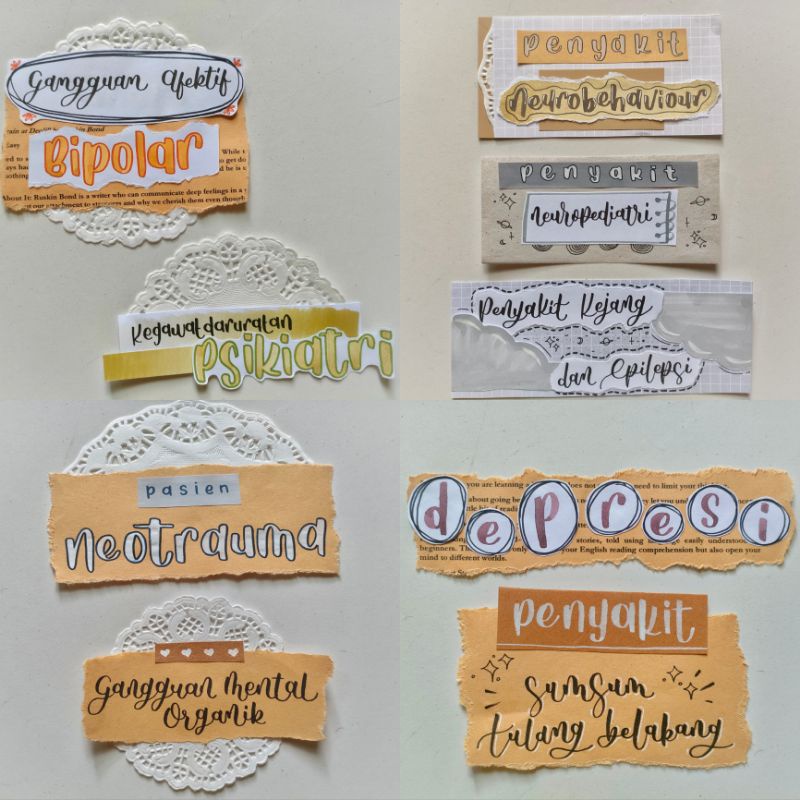 Gangguan Afektif
Bipolar
About It: Ruskin Bond is a writer who can communicate deep feelings in a
Kegawatdaruratan
psikiatri
penyakit
neurobehaviour
penyakit
neuropediatri
Penyakit Kejang
dan Epilepsi
pasien
neotrauma
Gangguan Mental
Organik
you are learning
depresi
stories, told using
easily
beginners.
your English reading comprehension but also open your
mind to different worlds.
penyakit
sumsum
tulang belakang